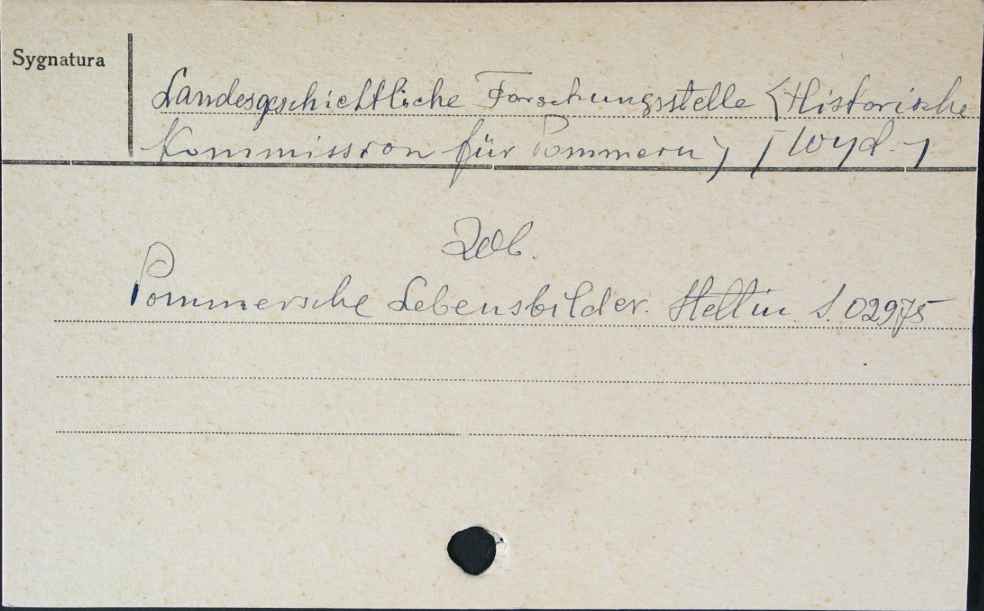 Sygnatura
Landesgeschichtliche Forschungsstelle (Historische
Kommission für Pommern) [wyd.]
Zob.
Pommersche Lebensbilder. Stettin S. 02975